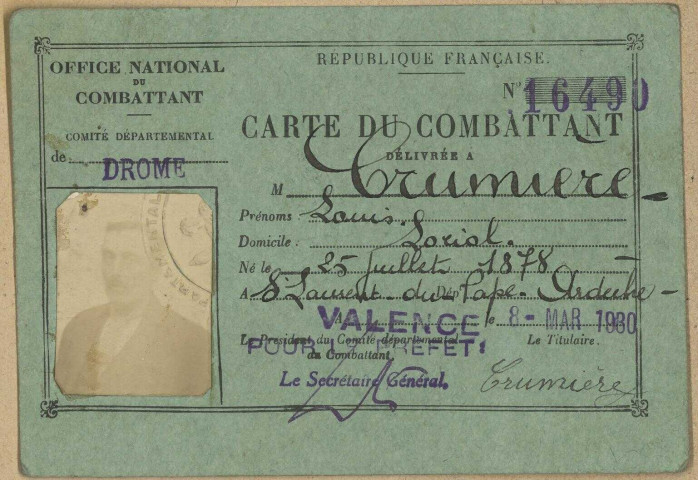 OFFICE NATIONAL
DU
COMBATTANT
COMITÉ DÉPARTEMENTAL
de DROME
REPUBLIQUE FRANÇAISE.
N° 16490
CARTE DU COMBATTANT
DÉLIVRÉE A
M Trumiere
Prénoms : Louis.
Domicile : Loriol.
Né le 25 Juillet 1878
A St Laurent-du-Pape- Dép Ardèche-
A VALENCE le 8- MAR 1930
Le Président du Comité départemental
du Combattant
POUR LE PREFET:
Le Secrétaire Général.
Le Titulaire.
Trumière
PARTAMENTAL